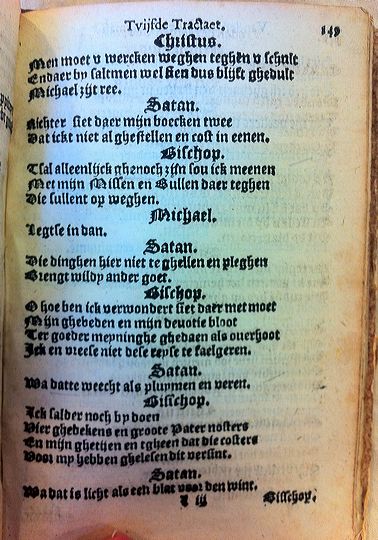 Tvijfde Tractaet. 149
Christus.
Men moet v wercken weghen teghen v schult
En daer by saltmen wel sien dus blijft ghedult
Michael zijt ree.
Satan.
Richter siet daer mijn boecken twee
Dat ickt niet al ghestellen en cost in eenen.
Bisschop.
Tsal alleenlijck ghenoch zijn sou ick meenen
Met mijn Missen en Bullen daer teghen
Die sullent op weghen.
Michael.
Legtse in dan.
Satan.
Die dinghen hier niet te ghellen en pleghen
Brengt wildy ander goet.
Bisschop.
O hoe ben ick verwondert siet daer met moet
Mijn ghebeden en mijn deuotie bloot
Ter goeder meyninghe ghedaen als ouerhoot
Ick en vreese niet dese reyse te faelgeren.
Satan.
Wa datte weecht als pluymen en veren.
Bisschop.
Ick salder noch by doen
Vier ghedekens en groote Pater nosters
En mijn ghetijen en tgheen dat die costers
Voor my hebben ghelesen dit versint.
Satan.
Wa dat is licht als een blat voor den wint.
T iij Bisschop.